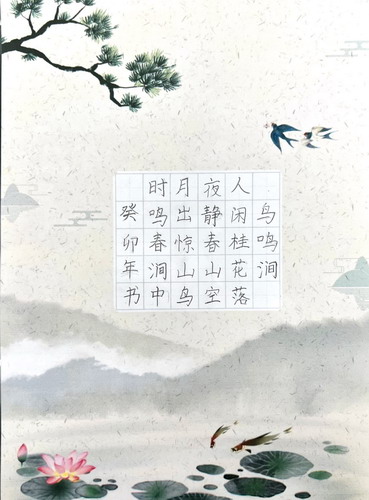 鸟鸣涧
人闲桂花落
夜静春山空
月出惊山鸟
时鸣春涧中
癸卯年书